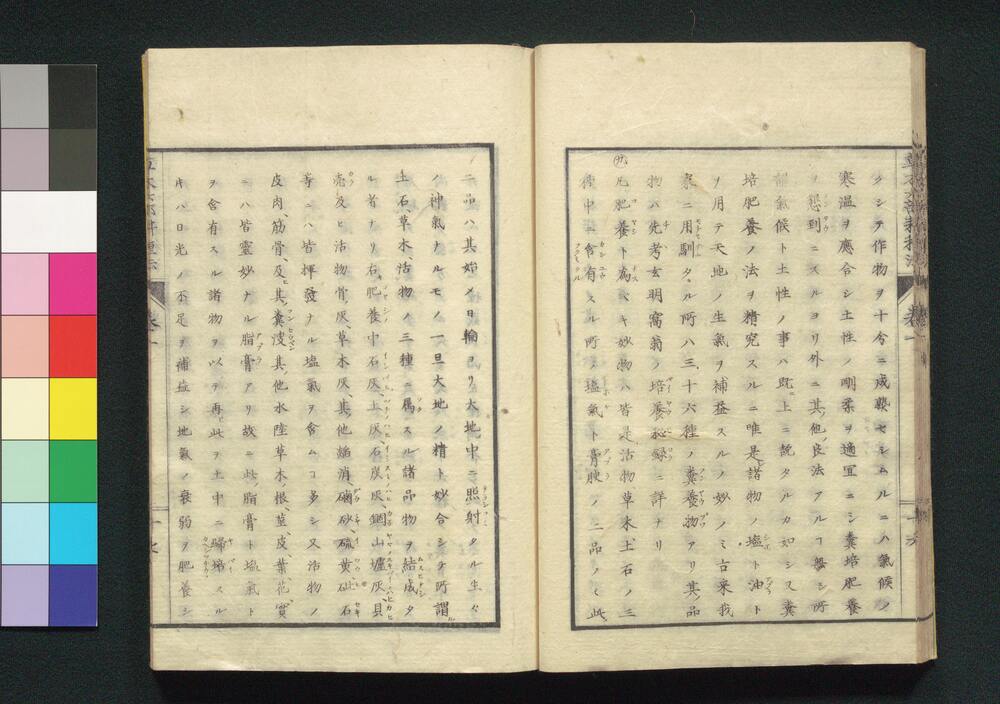 クシテ作物ヲ十分ニ成熟セシムルニハ氣候ノ
寒温ヲ應合シ土性ノ剛柔ヲ適宜ニシ糞培肥養
ノ懇到ニスルヨリ外ニ其他ノ良法アルコ無シ所
謂氣候ト土性ノ事ハ既ニ上ニ説タルカ如シス糞
培肥養ノ法ヲ精究スルニ唯是諸物ノ塩ト油ト
ヲ用テ天地ノ生氣ヲ補益スルノ妙ノミ古来我
家ニ用馴タル所八三十六種ノ糞養物アリ其品
物ハ先考玄明窩翁ノ培養秘録ニ詳ナリ
凡肥養ト為ベキ妙物ハ皆是活物草木土石ノ三
種中ニ含有スル所ノ塩氣ト膏腴ノ二品ノミ此
二品ハ其始メ日輪ヨリ大地中ニ照射タル生々
ノ神氣ナルモノ一旦大地ノ精ト妙合シテ所謂
土石、草木、活物ノ三種ニ属スル諸品物ヲ結成タ
ル者ナリ右肥養中石灰、土灰、石炭灰、銅山壚灰、貝
壳及ヒ活物骨灰、草木灰、其他焔消、硇砂、硫黄、砒石
等ニハ皆揮發ナル塩氣ヲ含ムコ多シ又活物ノ
皮肉、筋骨、及其糞溲其他水陸草木ノ根莖皮、葉花、實
ニハ皆霊妙ナル脂膏アリ故ニ此脂膏ト塩氣ト
ヲ含有スル諸物ヲ以テ再ヒ此ヲ土中ニ歸スル
キハ日光ノ不足ヲ補益シ地氣ノ衰弱ヲ肥養シ